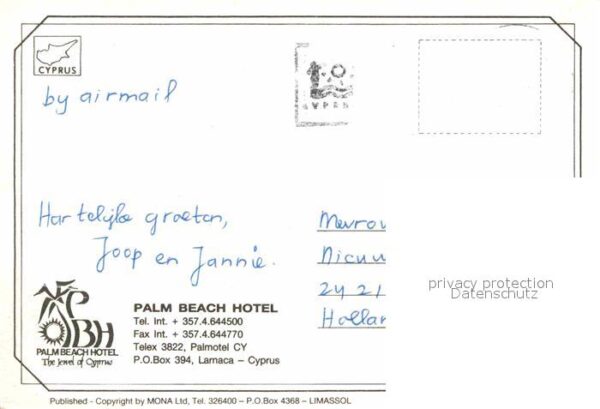 CYPRUS
by airmail
Hartelijke groeten,
Joop en Jannie.
Mevrou
Nieuw
24 21
Hollan
privacy protection
Datenschutz
PBH
PALM BEACH HOTEL
The Jewel of Cyprus
PALM BEACH HOTEL
Tel. Int. + 357.4.644500
Fax Int. + 357.4.644770
Telex 3822, Palmotel CY
P.O.Box 394, Larnaca – Cyprus
Published - Copyright by MONA Ltd, Tel. 326400 – P.O.Box 4368 – LIMASSOL